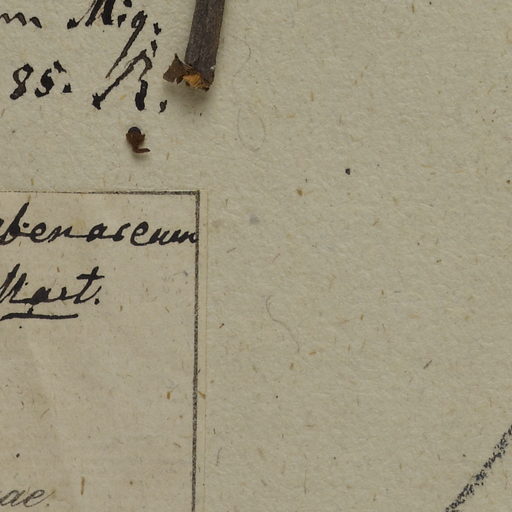 m Miq.
85. R.
benaceum
Mart.
ae.